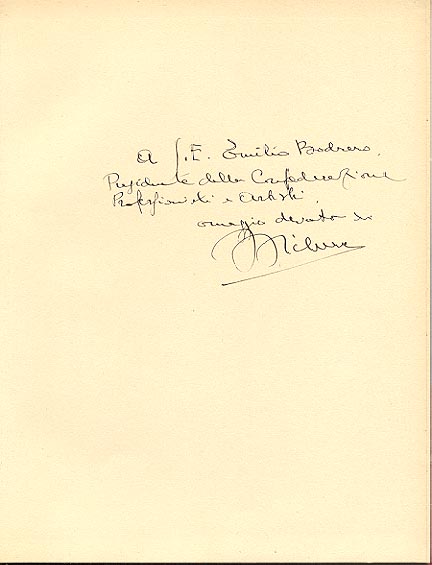 A S.E. Emilio Bodrero.
Presidente della Confederazione
Professionisti e Artisti.
omaggio devoto di